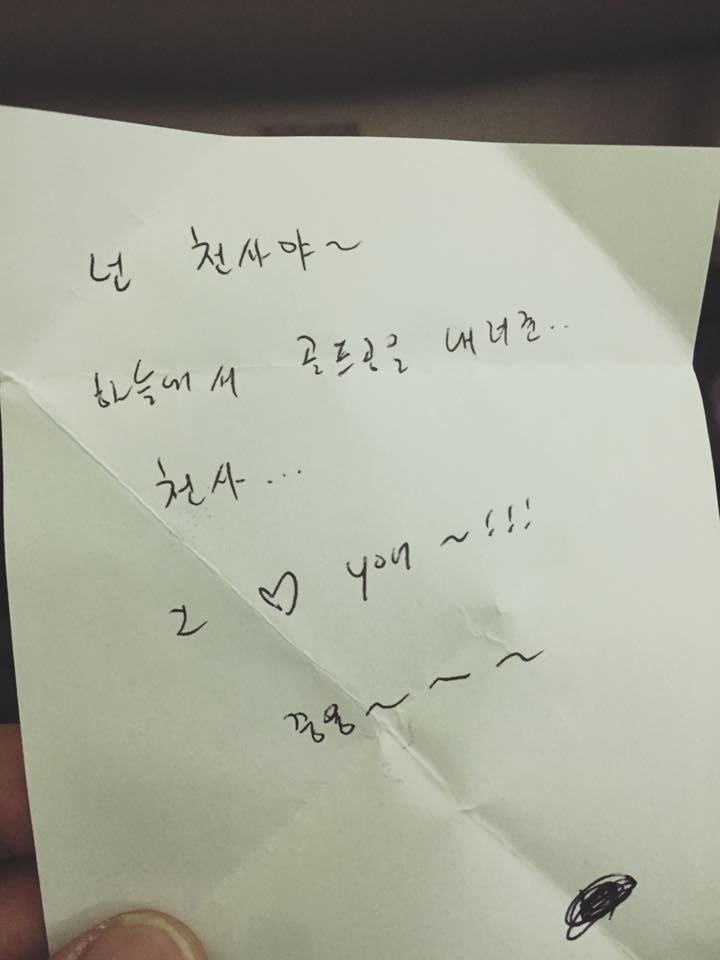 넌 천사야~
하늘에서 골프공을 내려준..
천사...
I ♡ you ~!!!
뿅뿅~ ~ ~